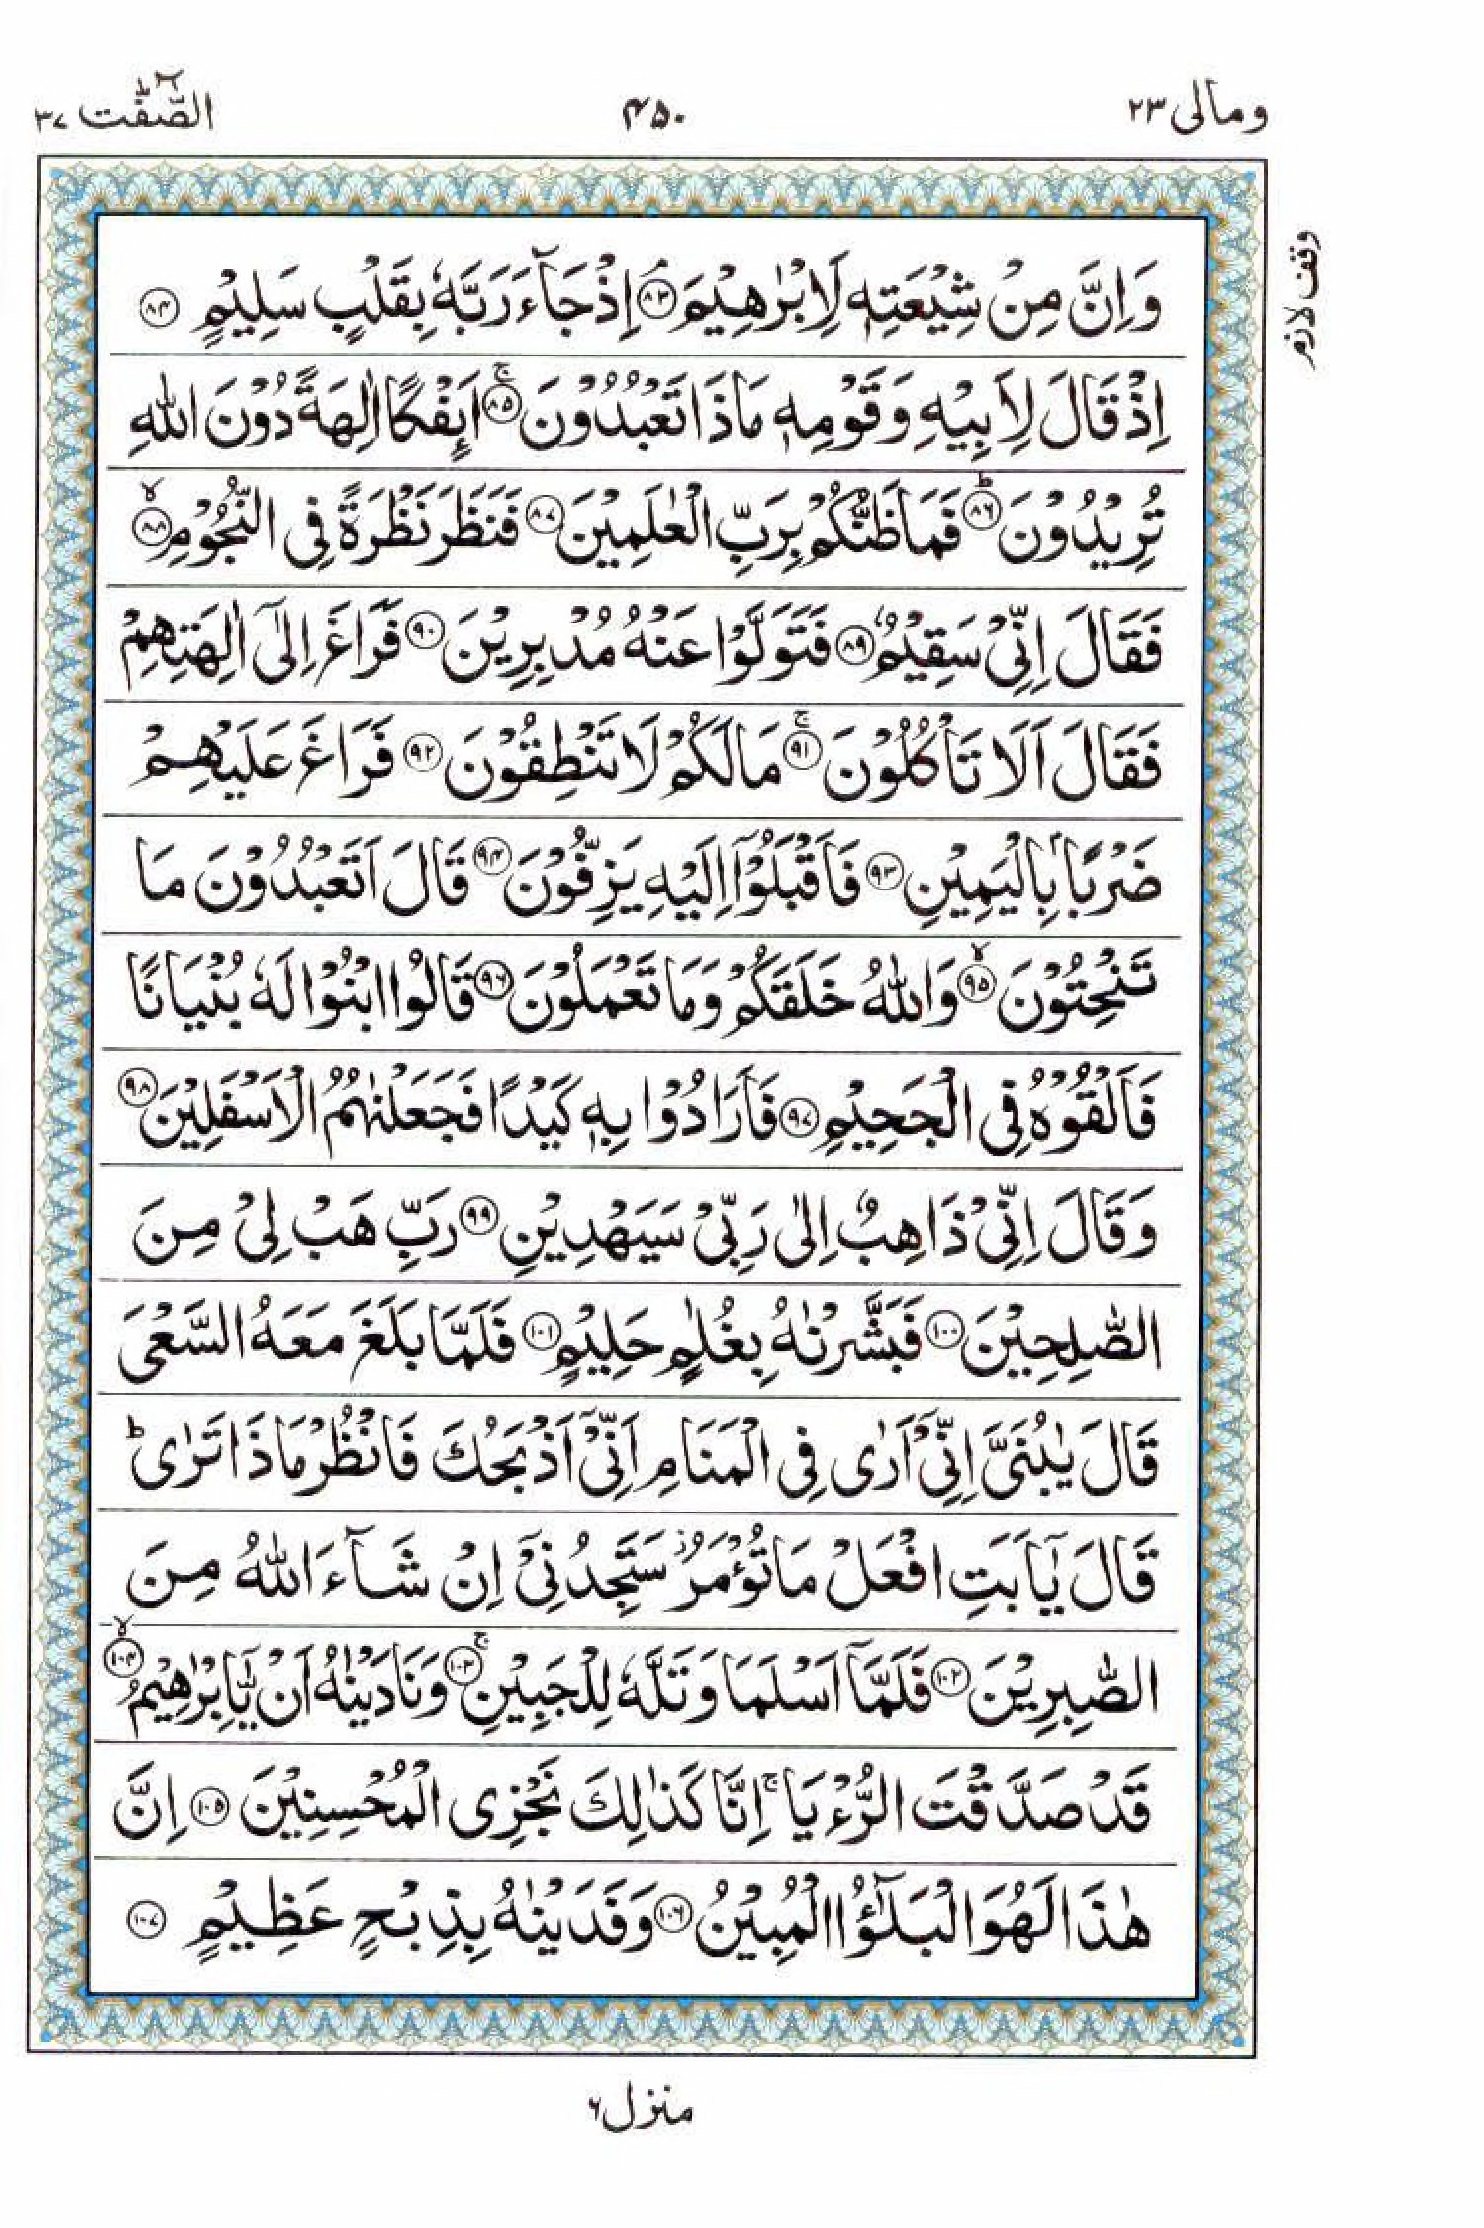 ومالی ۲۳
۴۵۰
الصّٰٓفّٰت ۳۷
وقف لازم
وَاِنَّ مِنْ شِيْعَتِهٖ لَاِبْرٰهِيْمَ ۘ‏﴿۸۳﴾ اِذْ جَآءَ رَبَّهٗ بِقَلْبٍ سَلِيْمٍ ﴿۸۴﴾
اِذْ قَالَ لِاَبِيْهِ وَقَوْمِهٖ مَاذَا تَعْبُدُوْنَ ۚ﴿۸۵﴾ اَئِفْكًا اٰلِهَةً دُوْنَ اللّٰهِ
تُرِيْدُوْنَ ؕ﴿۸۶﴾ فَمَا ظَنُّكُمْ بِرَبِّ الْعٰلَمِيْنَ ﴿۸۷﴾ فَنَظَرَ نَظْرَةً فِى النُّجُوْمِ ۙ﴿۸۸﴾
فَقَالَ اِنِّىْ سَقِيْمٌ ﴿۸۹﴾ فَتَوَلَّوْا عَنْهُ مُدْبِرِيْنَ ﴿۹۰﴾ فَرَاغَ اِلٰٓى اٰلِهَتِهِمْ
فَقَالَ اَلَا تَاْكُلُوْنَ ۚ﴿۹۱﴾ مَا لَكُمْ لَا تَنْطِقُوْنَ ﴿۹۲﴾ فَرَاغَ عَلَيْهِمْ
ضَرْبًۢا بِالْيَمِيْنِ ﴿۹۳﴾ فَاَقْبَلُوْٓا اِلَيْهِ يَزِفُّوْنَ ﴿۹۴﴾ قَالَ اَتَعْبُدُوْنَ مَا
تَنْحِتُوْنَ ۙ﴿۹۵﴾ وَاللّٰهُ خَلَقَكُمْ وَمَا تَعْمَلُوْنَ ﴿۹۶﴾ قَالُوا ابْنُوْا لَهٗ بُنْيَانًا
فَاَلْقُوْهُ فِى الْجَحِيْمِ ﴿۹۷﴾ فَاَرَادُوْا بِهٖ كَيْدًا فَجَعَلْنٰهُمُ الْاَسْفَلِيْنَ ﴿۹۸﴾
وَقَالَ اِنِّىْ ذَاهِبٌ اِلٰى رَبِّىْ سَيَهْدِيْنِ ﴿۹۹﴾ رَبِّ هَبْ لِىْ مِنَ
الصّٰلِحِيْنَ ﴿۱۰۰﴾ فَبَشَّرْنٰهُ بِغُلٰمٍ حَلِيْمٍ ﴿۱۰۱﴾ فَلَمَّا بَلَغَ مَعَهُ السَّعْىَ
قَالَ يٰبُنَىَّ اِنِّىْٓ اَرٰى فِى الْمَنَامِ اَنِّىْٓ اَذْبَحُكَ فَانْظُرْ مَاذَا تَرٰى ؕ
قَالَ يٰٓاَبَتِ افْعَلْ مَا تُؤْمَرُ ۫ سَتَجِدُنِىْٓ اِنْ شَآءَ اللّٰهُ مِنَ
الصّٰبِرِيْنَ ﴿۱۰۲﴾ فَلَمَّآ اَسْلَمَا وَتَلَّهٗ لِلْجَبِيْنِ ۚ﴿۱۰۳﴾ وَنَادَيْنٰهُ اَنْ يّٰٓاِبْرٰهِيْمُ ۙ﴿۱۰۴﴾
قَدْ صَدَّقْتَ الرُّءْيَا ۚ اِنَّا كَذٰلِكَ نَجْزِى الْمُحْسِنِيْنَ ﴿۱۰۵﴾ اِنَّ
هٰذَا لَهُوَ الْبَلٰٓؤُا الْمُبِيْنُ ﴿۱۰۶﴾ وَفَدَيْنٰهُ بِذِبْحٍ عَظِيْمٍ ﴿۱۰۷﴾
منزل ۶